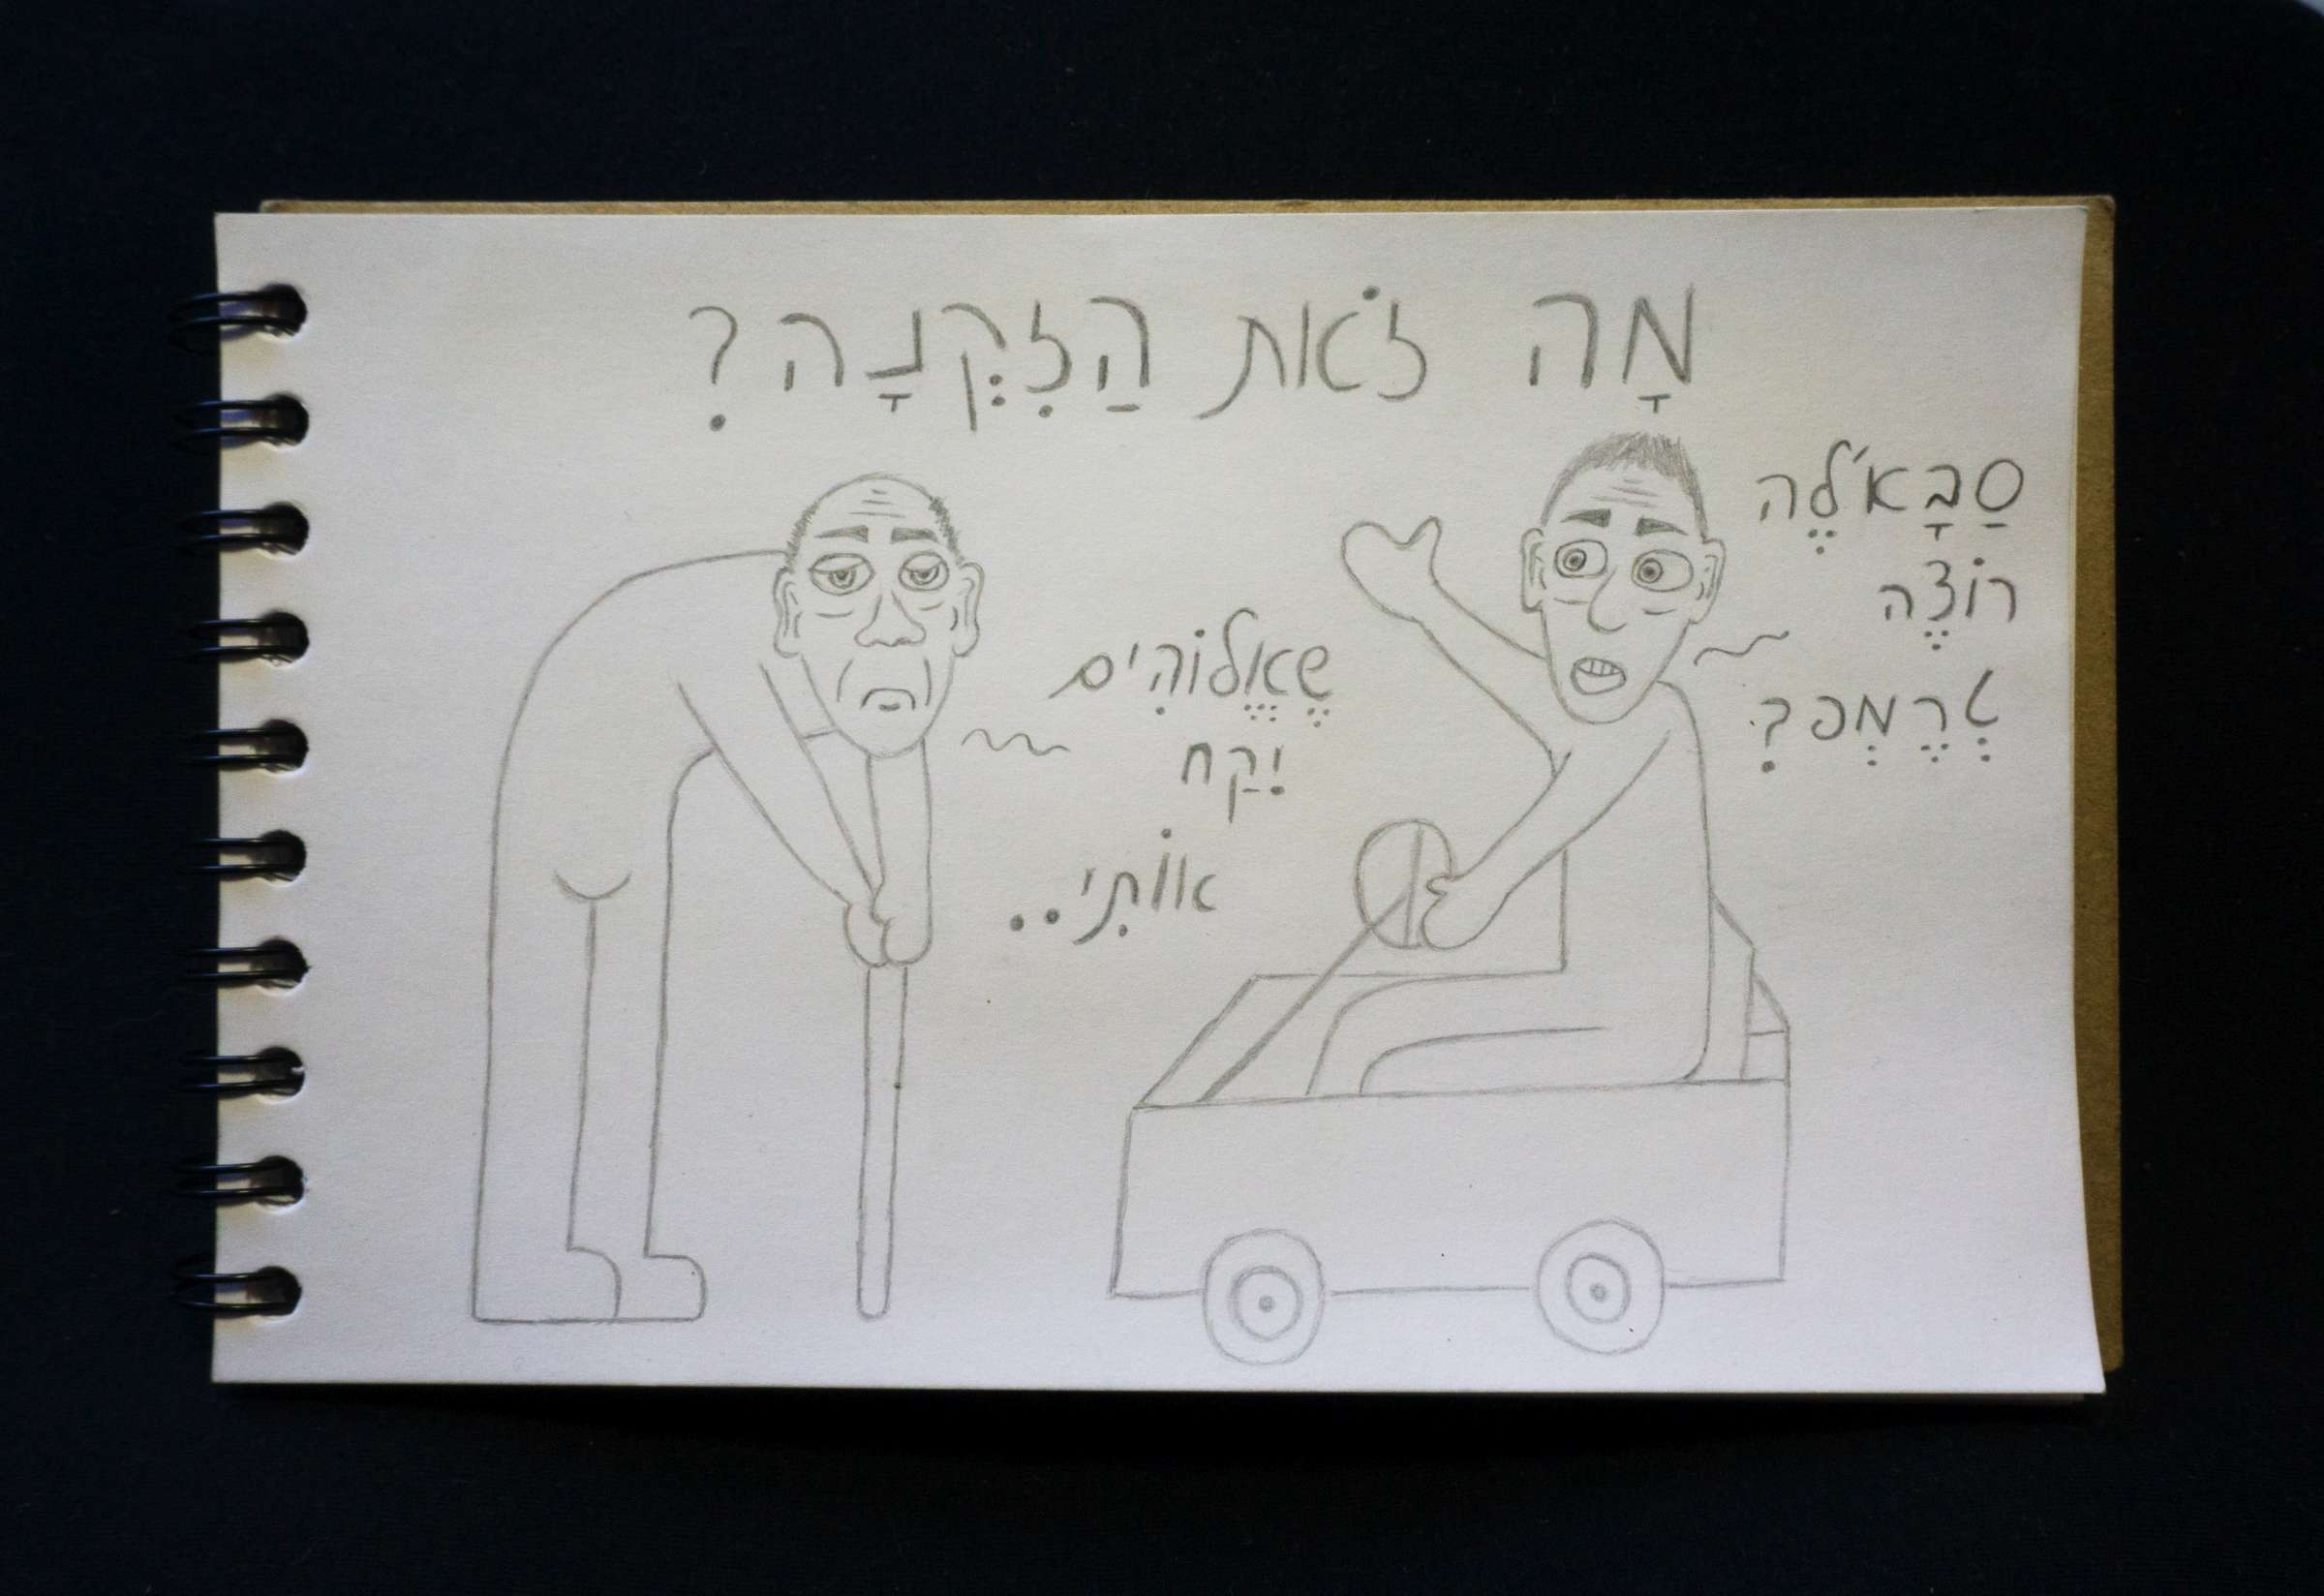 מָה זֹאת הַזִּקְנָה?
סַבָּא'לֶה
רוֹצֶה
טְרֶמְפּ?
שֶׁאֱלוֹהִים
יִקַּח
אוֹתִי..